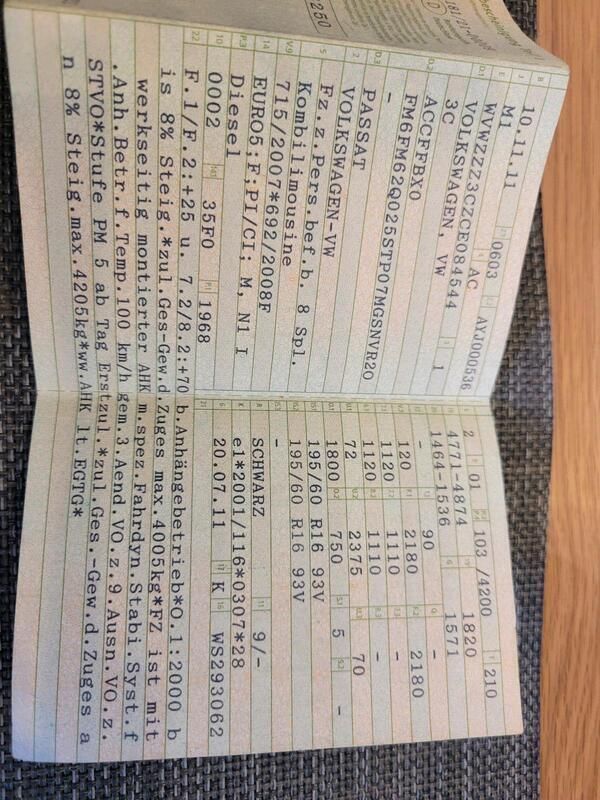 10.11.11 0603 AYJ000536
M1 AC
WVWZZZ3CZCE084544 1
VOLKSWAGEN, VW
3C
ACCFFBX0
FM6FM62Q025STP07MGSNVR20
-
PASSAT
VOLKSWAGEN-VW
Fz.z.Pers.bef.b. 8 Spl.
Kombilimousine
715/2007*692/2008F
EURO5;F;PI/CI; M, N1 I
Diesel
0002 35F0 1968
2 01 103 /4200 210
4771-4874 1820
1464-1536 1571
- 90 -
120 2180 2180
1120 1110 -
1120 1110 -
72 2375 70
1800 750 5 -
195/60 R16 93V
195/60 R16 93V
-
SCHWARZ 9/-
e1*2001/116*0307*28
20.07.11 K WS293062
F.1/F.2:+25 u. 7.2/8.2:+70 b.Anhängebetrieb*O.1:2000 b
is 8% Steig.*zul.Ges-Gew.d.Zuges max.4005kg*FZ ist mit
werkseitig montierter AHK m.spez.Fahrdyn.Stabi.Syst.f
.Anh.Betr.f.Temp.100 km/h gem.3.Aend.VO.z.9.Ausn.VO.z.
STVO*Stufe PM 5 ab Tag Erstzul.*zul.Ges.-Gew.d.Zuges a
n 8% Steig.max.4205kg*ww.AHK lt.EGTG*